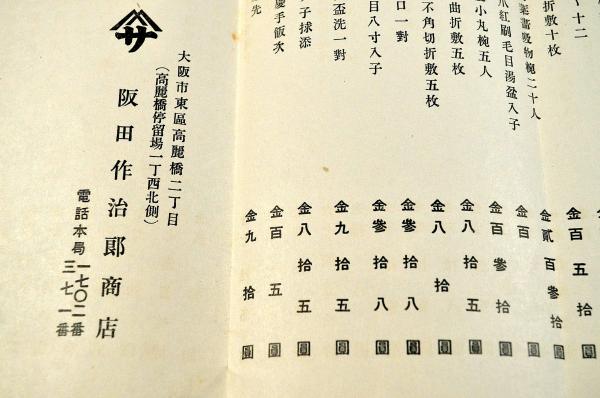 十二
折敷十枚 金百五拾圓
物椀二十人 金貳百參拾圓
爪紅刷毛目湯盆入子 金百圓
小丸椀五人 金百參拾圓
曲折敷五枚 金八拾五圓
不角切折敷五枚 金八拾圓
口一對 金參拾八圓
目八寸入子 金參拾八圓
盃洗一對 金九拾五圓
子捄添 金八拾五圓
慶手飯次 金百五圓
先 金九拾圓
大阪市東區高麗橋二丁目
（高麗橋停留場一丁西北側）
サ
阪田作治郎商店
電話本局一七〇二番
三七一番